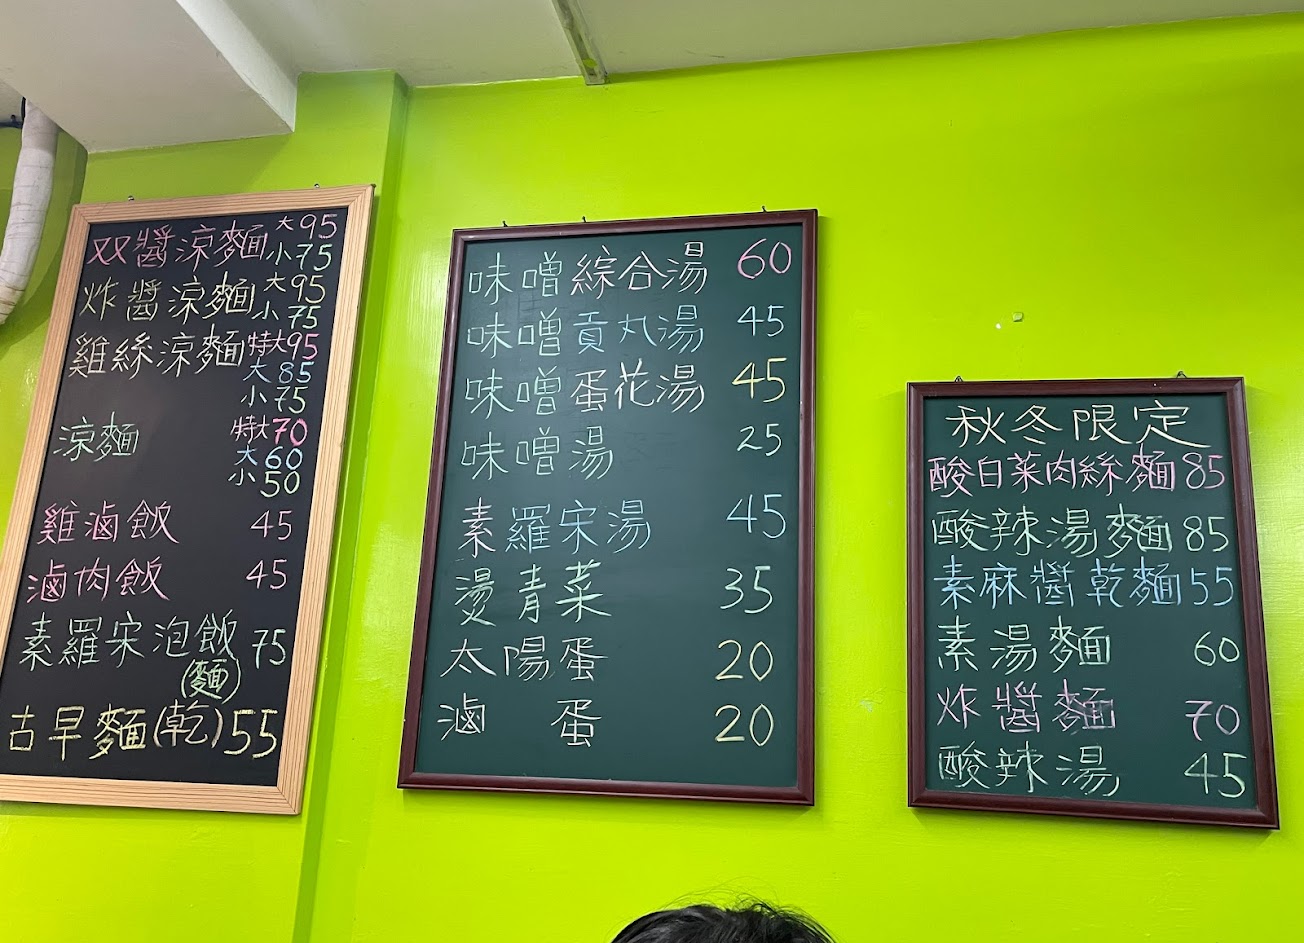 双醬涼麵 大95
小75
炸醬涼麵 大95
小75
雞絲涼麵 特大95
大85
小75
涼麵 特大70
大60
小50
雞滷飯 45
滷肉飯 45
素羅宋泡飯 75
(麵)
古早麵(乾)55
味噌綜合湯 60
味噌貢丸湯 45
味噌蛋花湯 45
味噌湯 25
素羅宋湯 45
燙青菜 35
太陽蛋 20
滷蛋 20
秋冬限定
酸白菜肉絲麵85
酸辣湯麵85
素麻醬乾麵55
素湯麵 60
炸醬麵 70
酸辣湯 45